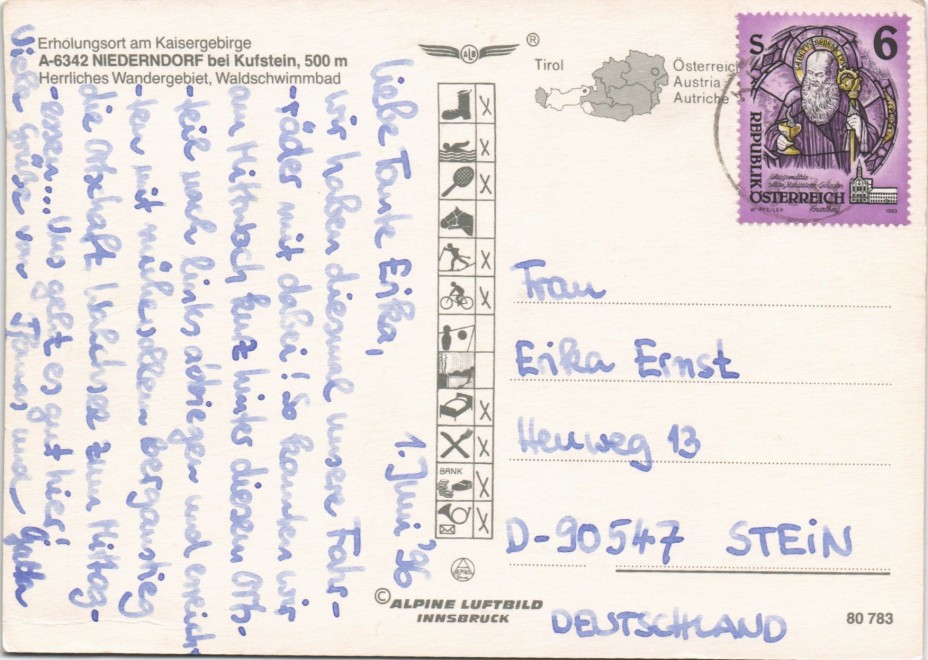 Erholungsort am Kaisergebirge
A-6342 NIEDERNDORF bei Kufstein, 500 m
Herrliches Wandergebiet, Waldschwimmbad
1. Juni '96
Liebe Tante Erika,
wir haben diesmal unsere Fahr-
räder mit dabei! So konnten wir
am Mittwoch kurz hinter diesem Orts-
teil nach links abbiegen und erreich-
ten mit mühevollem Berganstieg
die Ortschaft Walchsee zum Mittag-
essen... Uns geht es gut hier!
Viele Grüße von und
ALB
®
Tirol
Österreich
Austria
Autriche
BANK
© ALPINE LUFTBILD
INNSBRUCK
S 6
REPUBLIK
ÖSTERREICH
1993
Frau
Erika Ernst
Heuweg 13
D-90547 STEIN
DEUTSCHLAND
80 783